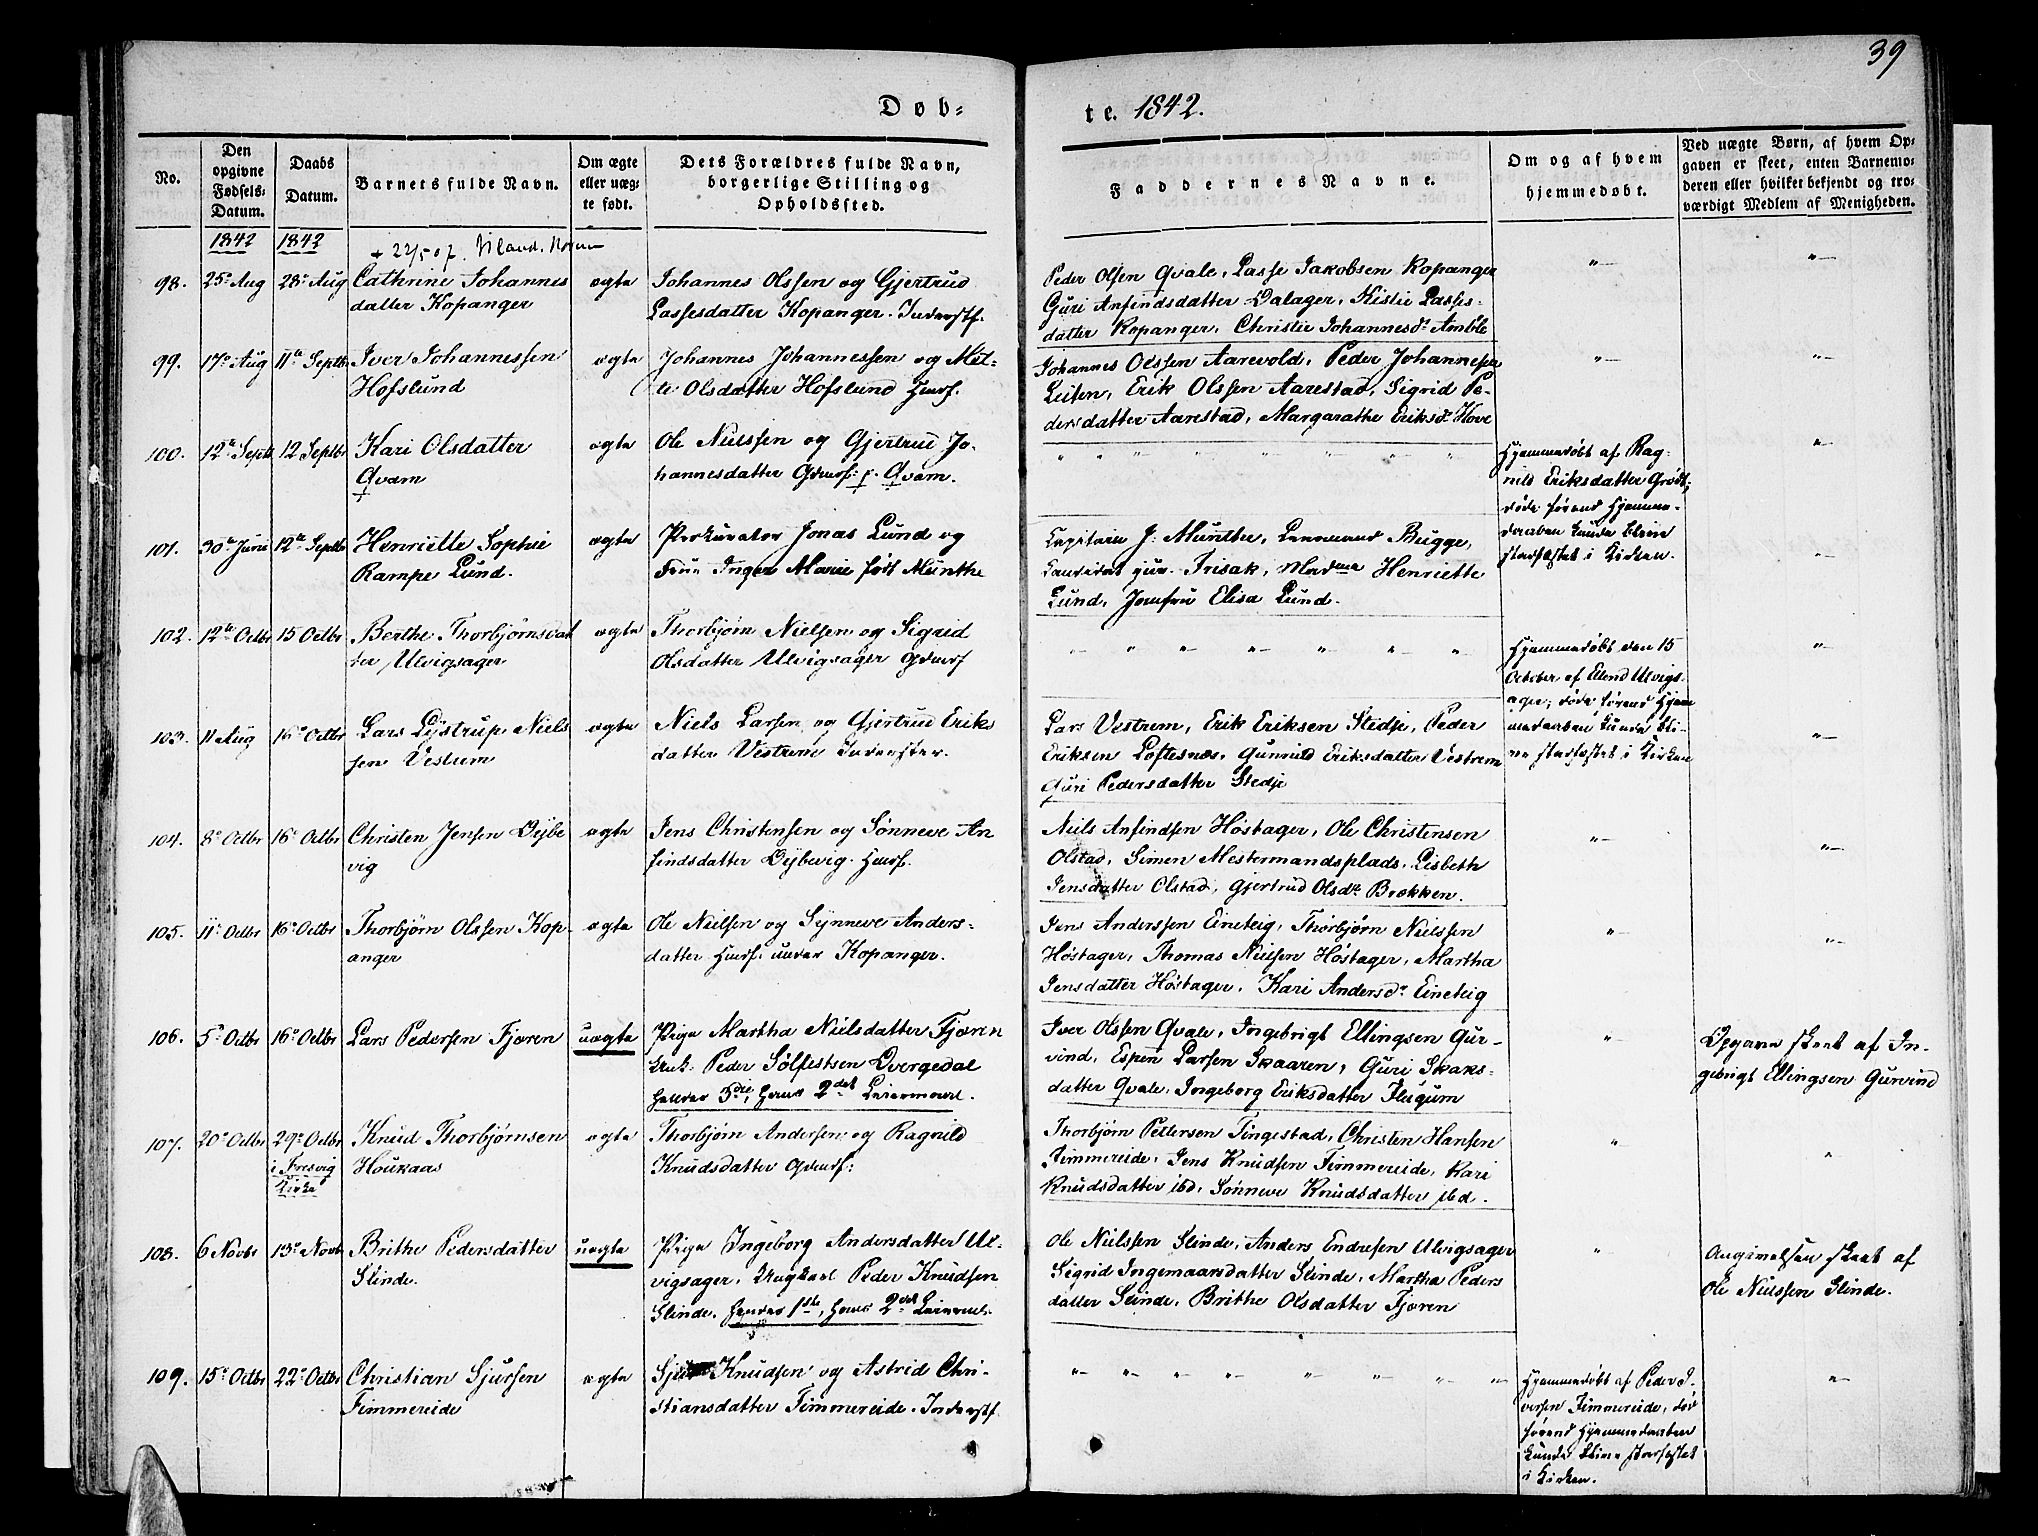 39
Døb=
te. 1842.
No.
Den opgivne Fødsels-Datum.
Daabs Datum.
Barnets fulde Navn.
Om ægte eller uægte født.
Dets Forældres fulde Navn, borgerlige Stilling og Opholdssted.
Faddernes Navne.
Om og af hvem hjemmedøbt.
Ved uægte Børn, af hvem Opgaven er skeet, enten Barnemoderen eller hvilket bekjendt og troværdigt Medlem af Menigheden.
1842 1842
98. 25de Aug 28de Aug Cathrine Johannes
datter Kopanger
ægte
Johannes Olssen og Gjertrud
Lassesdatter Kopanger. Inderstf.
Peder Olsen Qvale, Lasse Jakobsen Kopanger
Guri Anfindsdatter Dalager, Kistie Lasses-
datter Kopanger, Christie Johannesdr Amble
99. 17de Aug 11te Septbr Iver Johannessen
Hofslund
ægte
Johannes Johannessen og Met-
te Olsdatter Hofslund Huusf.
Johannes Olssen Aarevold, Peder Johannesen
Leiten, Erik Olssen Aarestad, Sigrid Pe-
dersdatter Aarestad, Margarathe Eriksdr Hove
100. 12te Septbr 12 Septbr Kari Olsdatter
Qvam
ægte
Ole Nielssen og Gjertrud Jo-
hannesdatter Gdmsf: p. Qvam.
Hjemmedøbt af Rag-
nild Eriksdatter Grødt;
døde førend Hjemme-
daaben kunde blive
stadfæstet i Kirken.
101. 30te Juni 12te Septbr Henriette Sophie
Rampe Lund.
ægte
Prokurator Jonas Lund og
Frue Inger Marie født Munthe
Capitain J. Munthe, Lensmand Bugge,
Candidat jur. Frisak, Madme Henriette
Lund, Jomfru Elisa Lund.
102. 12te Octbr 15 Octbr Berthe Thorbjørnsdat
ter Ulvigsager
ægte
Thorbjørn Nielsen og Sigrid
Olsdatter Ulvigsager Gdmsf
Hjemmedøbt den 15
October af Erlend Ulvigs-
ager; døde førend Hjem
medaaben kunde bli-
ve stadfæstet i Kirken
103. 11 Aug 16de Octbr Lars Lystrup Niels
sen Vestrum
ægte
Niels Larsen og Gjertrud Eriks
datter Vestrem Inderster.
Lars Vestrem, Erik Eriksen Stedje, Peder
Eriksen Loftesnæs, Gunnild Eriksdatter Vestrem
Guri Pedersdatter Stedje
104. 8de Octbr 16de Octbr Christen Jensen Dybe
vig
ægte
Jens Christensen og Sønneve An
findsdatter Dybevig. Huusf.
Niels Anfindsen Høstager, Ole Christensen
Olstad, Simen Mestermandsplads, Lisbeth
Jensdatter Olstad, Gjertrud Olsdr Brækken.
105. 11te Octbr 16de Octbr Thorbjørn Olssen Kop
anger
ægte
Ole Nielsen og Synneve Anders-
datter Huusf. under Kopanger.
Jens Anderssen Eineteig, Thorbjørn Nielssen
Høstager, Thomas Nielsen Høstager, Martha
Jensdatter Høstager, Kari Andersdr Eineteig
106. 5te Octbr 16de Octbr Lars Pedersen Fjæren
uægte
Pige Martha Nielsdatter Fjæren
Unk. Peder Sølfestsen Dvergedal
hendes 3die, hans 2det Leiermaal.
Iver Olssen Qvale, Ingebrigt Ellingsen Gur-
vind, Espen Larsen Skaaren, Guri Isaks-
datter Qvale, Ingeborg Eriksdatter Flugum
Opgave skeet af In-
gebrigt Ellingsen Gurvind
107. 20de Octbr 29de Octbr i Fresvig Kirke Knud Thorbjørnsen
Houkaas
ægte
Thorbjørn Andersen og Ragnild
Knudsdatter Gdmsf:
Thorbjørn Pettersen Tingestad, Christen Hansen
Fimmereide, Jens Knudsen Fimmereide, Kari
Knudsdatter ibd, Sønneve Knudsdatter ibd.
108. 6 Novbr 13de Novbr Brithe Pedersdatter
Slinde.
uægte
Pige Ingeborg Andersdatter Ul-
vigsager, Ungkarl Peder Knudsen
Slinde, hendes 1ste, hans 2det Leiermaal.
Ole Nielssen Slinde, Anders Endresen Ulvigsager
Sigrid Ingemaarsdatter Slinde, Martha Peders
datter Slinde, Brithe Olsdatter Fjæren
Angivelsen skeet af
Ole Nielssen Slinde.
109. 15de Octbr 22de Octbr Christian Sjursen
Fimmereide
ægte
Sjur Knudsen og Astrid Chri-
stiansdatter Fimmereide. Inderstf.
Hjemmedøbt af Peder I-
versen Fimmereide, død
førend Hjemmedaaben
kunde blive stadfæstet
i Kirken.